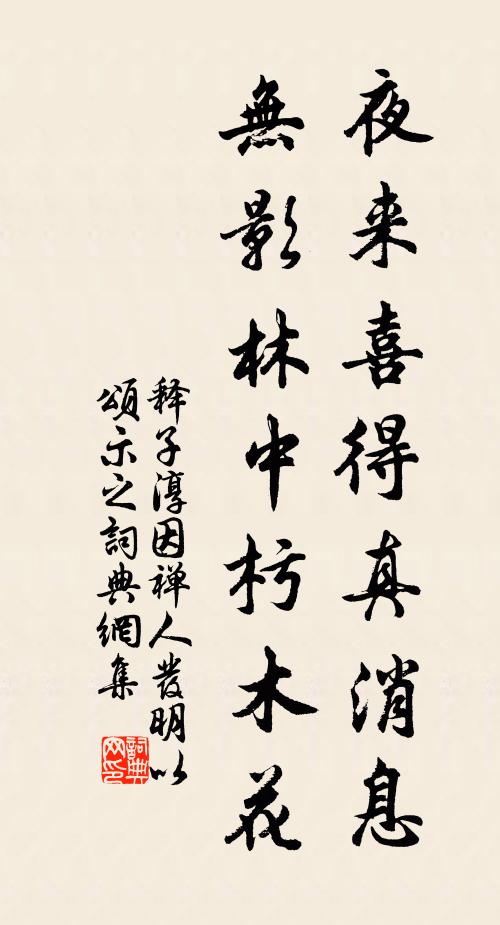 夜来喜得真消息
無影林中朽木花
释子淳因禅人發明以
頌示之詞典網集
詞典网印